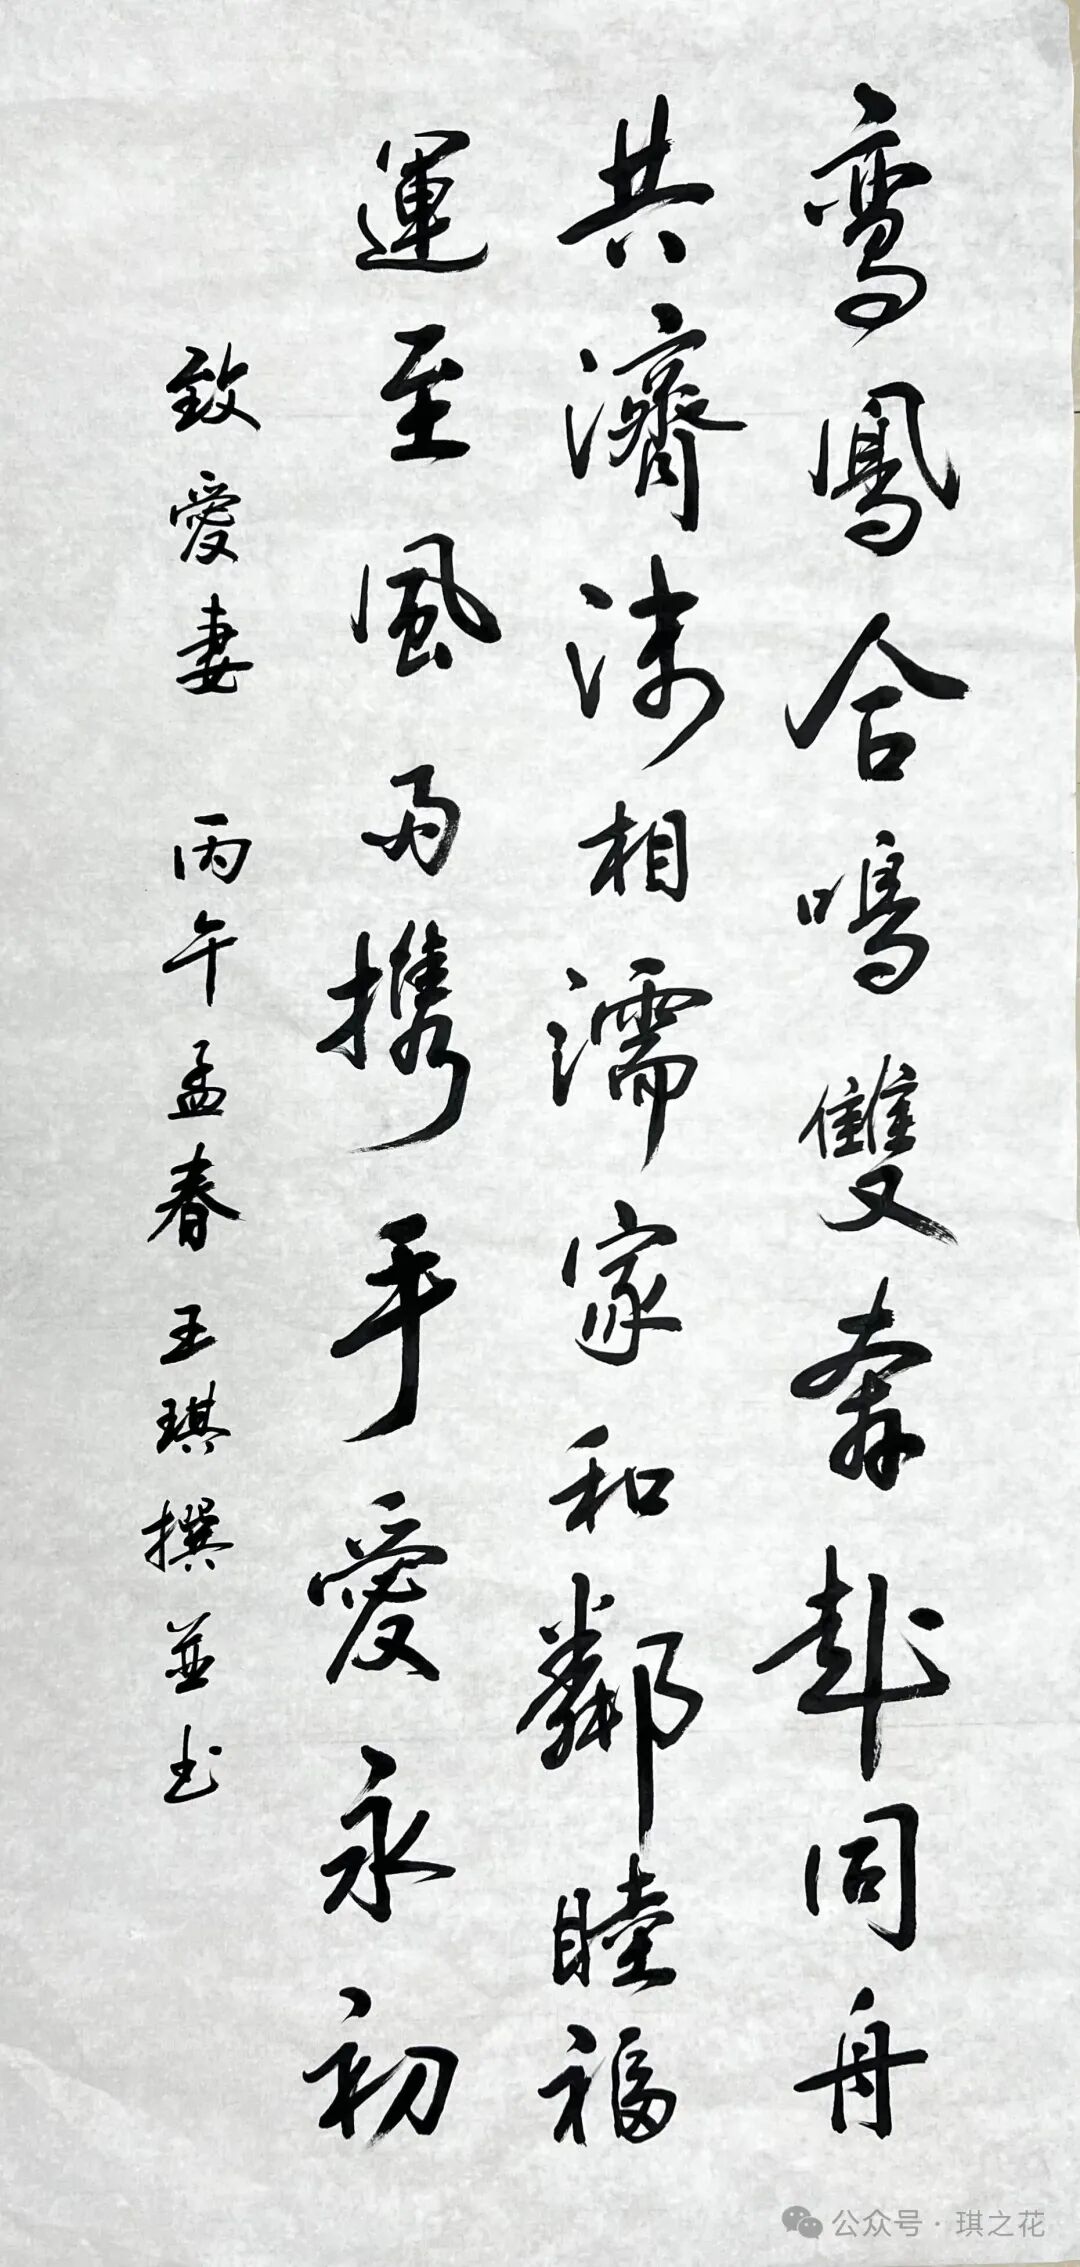 鸾鳳合鳴雙奔赴同舟
共濟沫相濡家和鄰睦福
運至風雨携手愛永初
致愛妻 丙午孟春王琪撰並书
公众号·琪之花